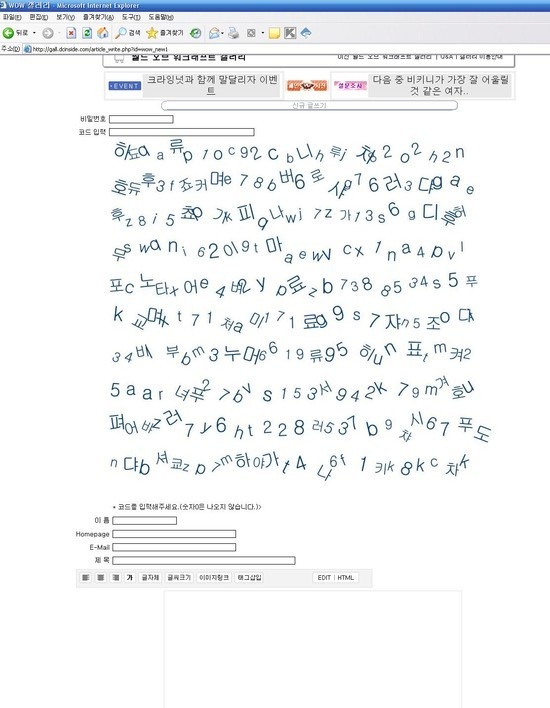 WOW 갤러리 - Microsoft Internet Explorer
파일(F) 편집(E) 보기(V) 즐겨찾기(A) 도구(T) 도움말(H)
뒤로 검색 즐겨찾기
주소(D) http://gall.dcinside.com/article_write.php?id=wow_new1
월드 오브 워크래프트 갤러리
Q&A | 갤러리 이용안내
EVENT 크라잉넛과 함께 말달리자 이벤트
다음 중 비키니가 가장 잘 어울릴 것 같은 여자..
신규 글쓰기
비밀번호
코드 입력
a a 류 p 1 o c 9 2 c b 니 h 루 j 2 o 2 h 2 n
호 듀 후 3 f 죠 커 며 e 7 8 b 버 6 로 7 6 러 3 g a e
후 z 8 i 5 피 q 나 w j 7 z 가 1 3 s 6 g 디
s w a n i 6 2 0 l 9 t 마 a e w v c x 1 n a 4 p v l
포 c 노 타 x 어 e 4 배 2 y p 료 z b 7 3 8 8 5 3 4 s 5 푸
k 교 t 7 1 처 a 미 1 7 1 료 g 9 s 7 쟈 n 5 조 o 대
3 4 부 b m 3 누 6 6 1 9 류 9 5 히 u n 표 t m 켜 2
5 a a r 녀 푸 2 7 b v s 1 5 3 서 9 4 2 k 7 9 m 겨 호 u
펴 어 z 러 7 y 6 h t 2 2 8 러 5 3 7 b 9 차 시 6 7 푸 도
n 댜 b 셔 쿄 z p 7 m 하 야 가 t 4 나 6 f 1 키 k 8 k c 차 k
* 코드를 입력해주세요.(숫자0은 나오지 않습니다.)>
이 름
Homepage
E-Mail
제 목
가 글자체 글씨크기 이미지링크 태그삽입 EDIT | HTML